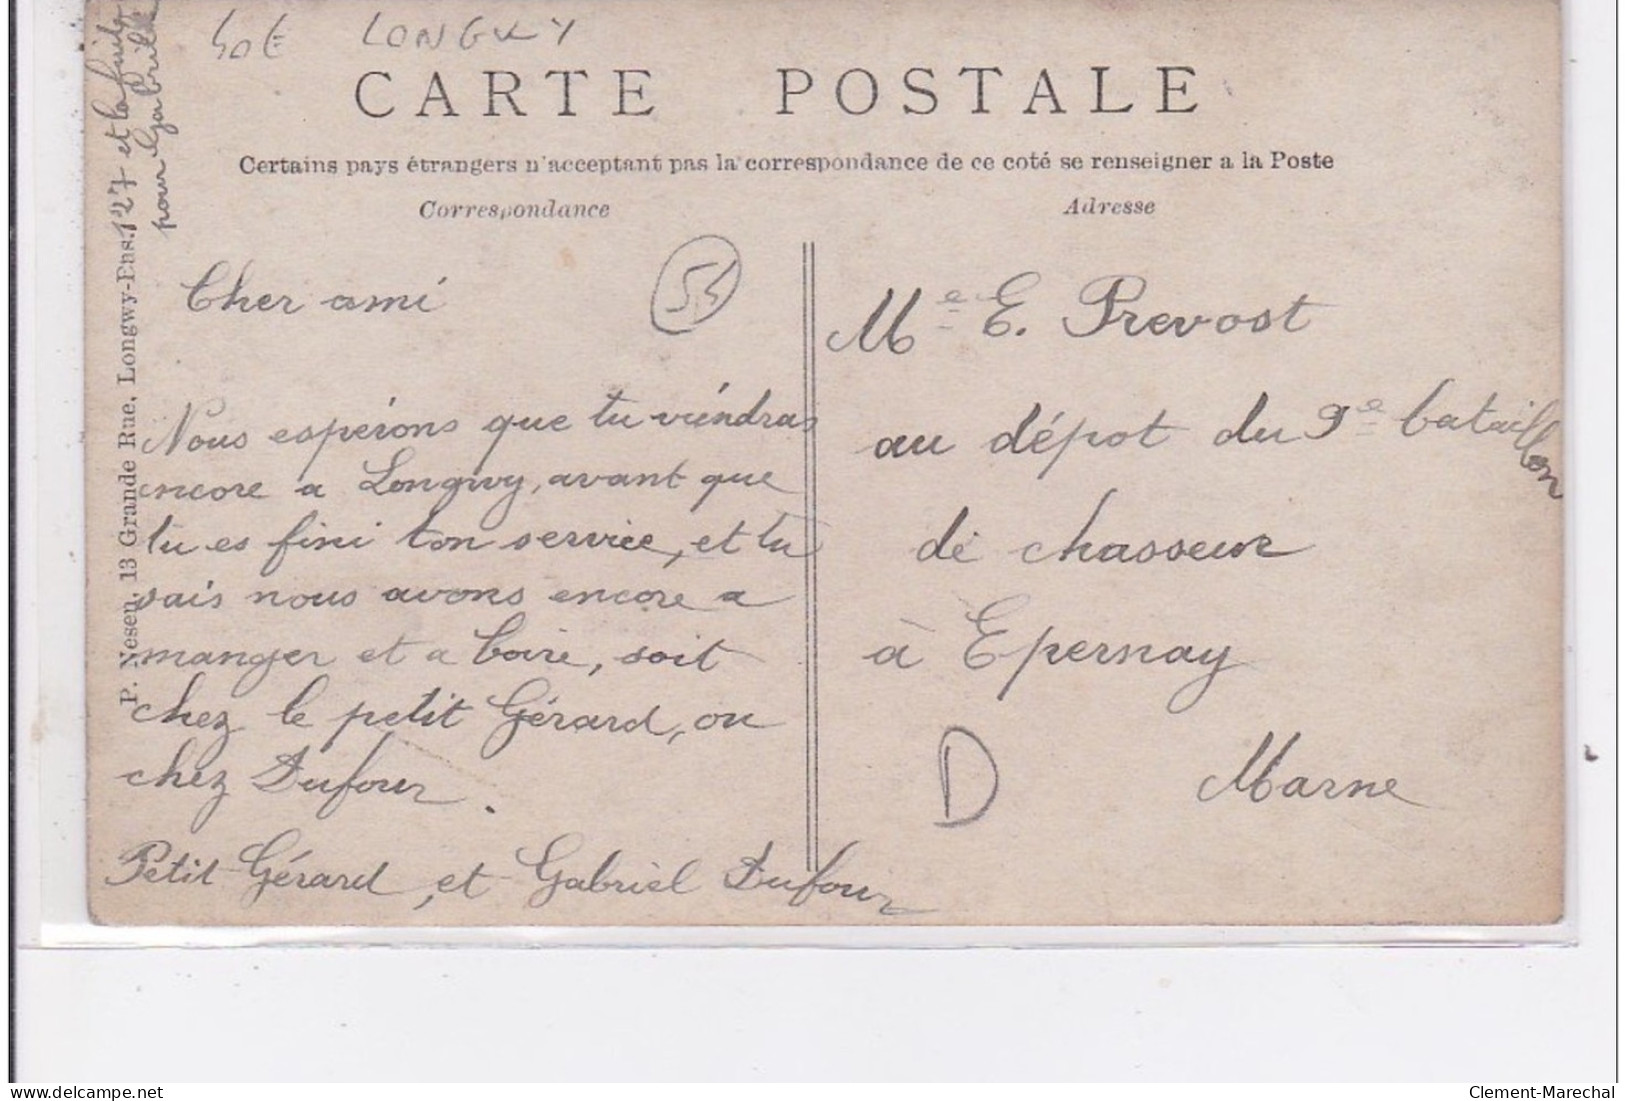 50E LONGWY
CARTE POSTALE
Certains pays étrangers n'acceptant pas la correspondance de ce coté se renseigner a la Poste
Correspondance
Adresse
127 et la fuite
pour Gabrielle
P. Nesen, 13 Grande Rue, Longwy-Bas.
54
Cher ami
Nous espérons que tu viéndras
encore a Longwy, avant que
tu es fini ton service, et tu
sais nous avons encore a
manger et a boire, soit
chez le petit Gérard, ou
chez Dufour.
Petit Gérard, et Gabriel Dufour
Me E. Prevost
au dépot du 9e bataillon
de chasseur
à Epernay
D
Marne
www.delcampe.net
Clement-Marechal